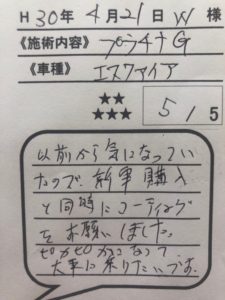 H30年4月21日 W 様
《施術内容》プラチナG
《車種》エスクァイア
★★
★★★
5/5
以前から気になってい
たので、新車購入
と同時にコーティング
をお願いしました。
ピカピカになって
大事に乗りたいです。